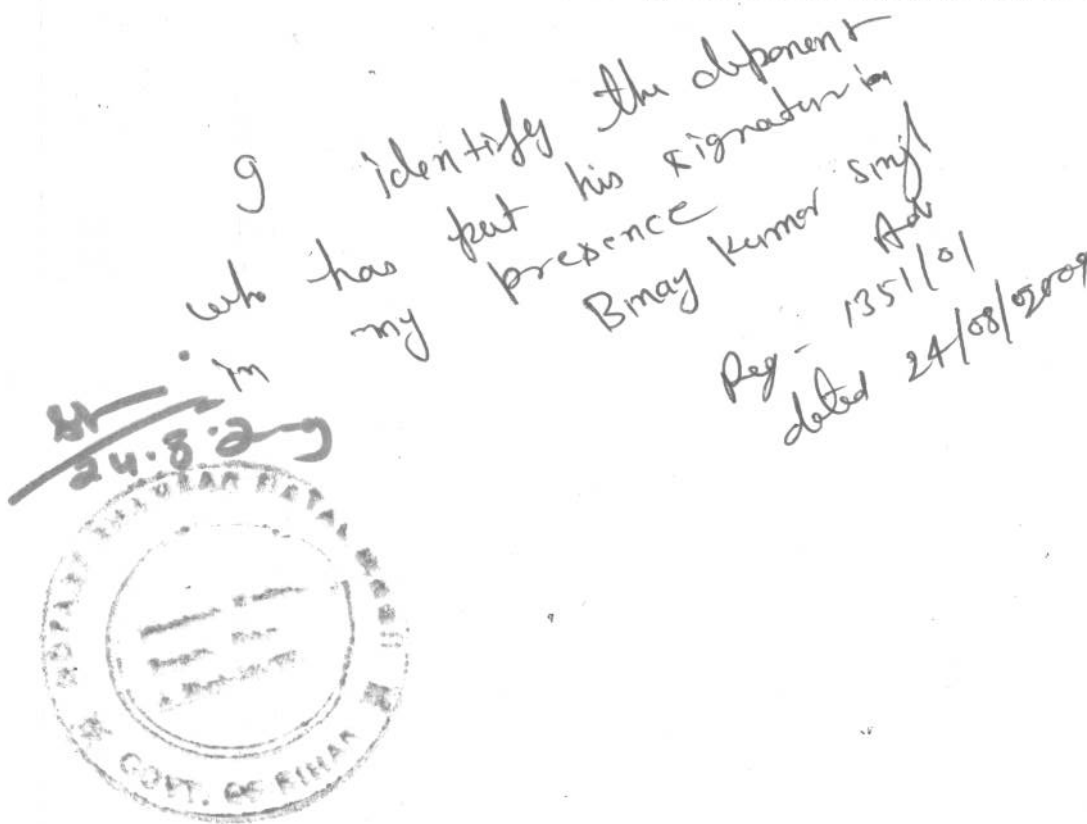 I identify the deponent
who has put his signature in
in my presence
Binay Kumar Singh
Adv
Reg - 1351/01
dated 24/08/2009
24.8.2009
GOVT. OF BIHAR